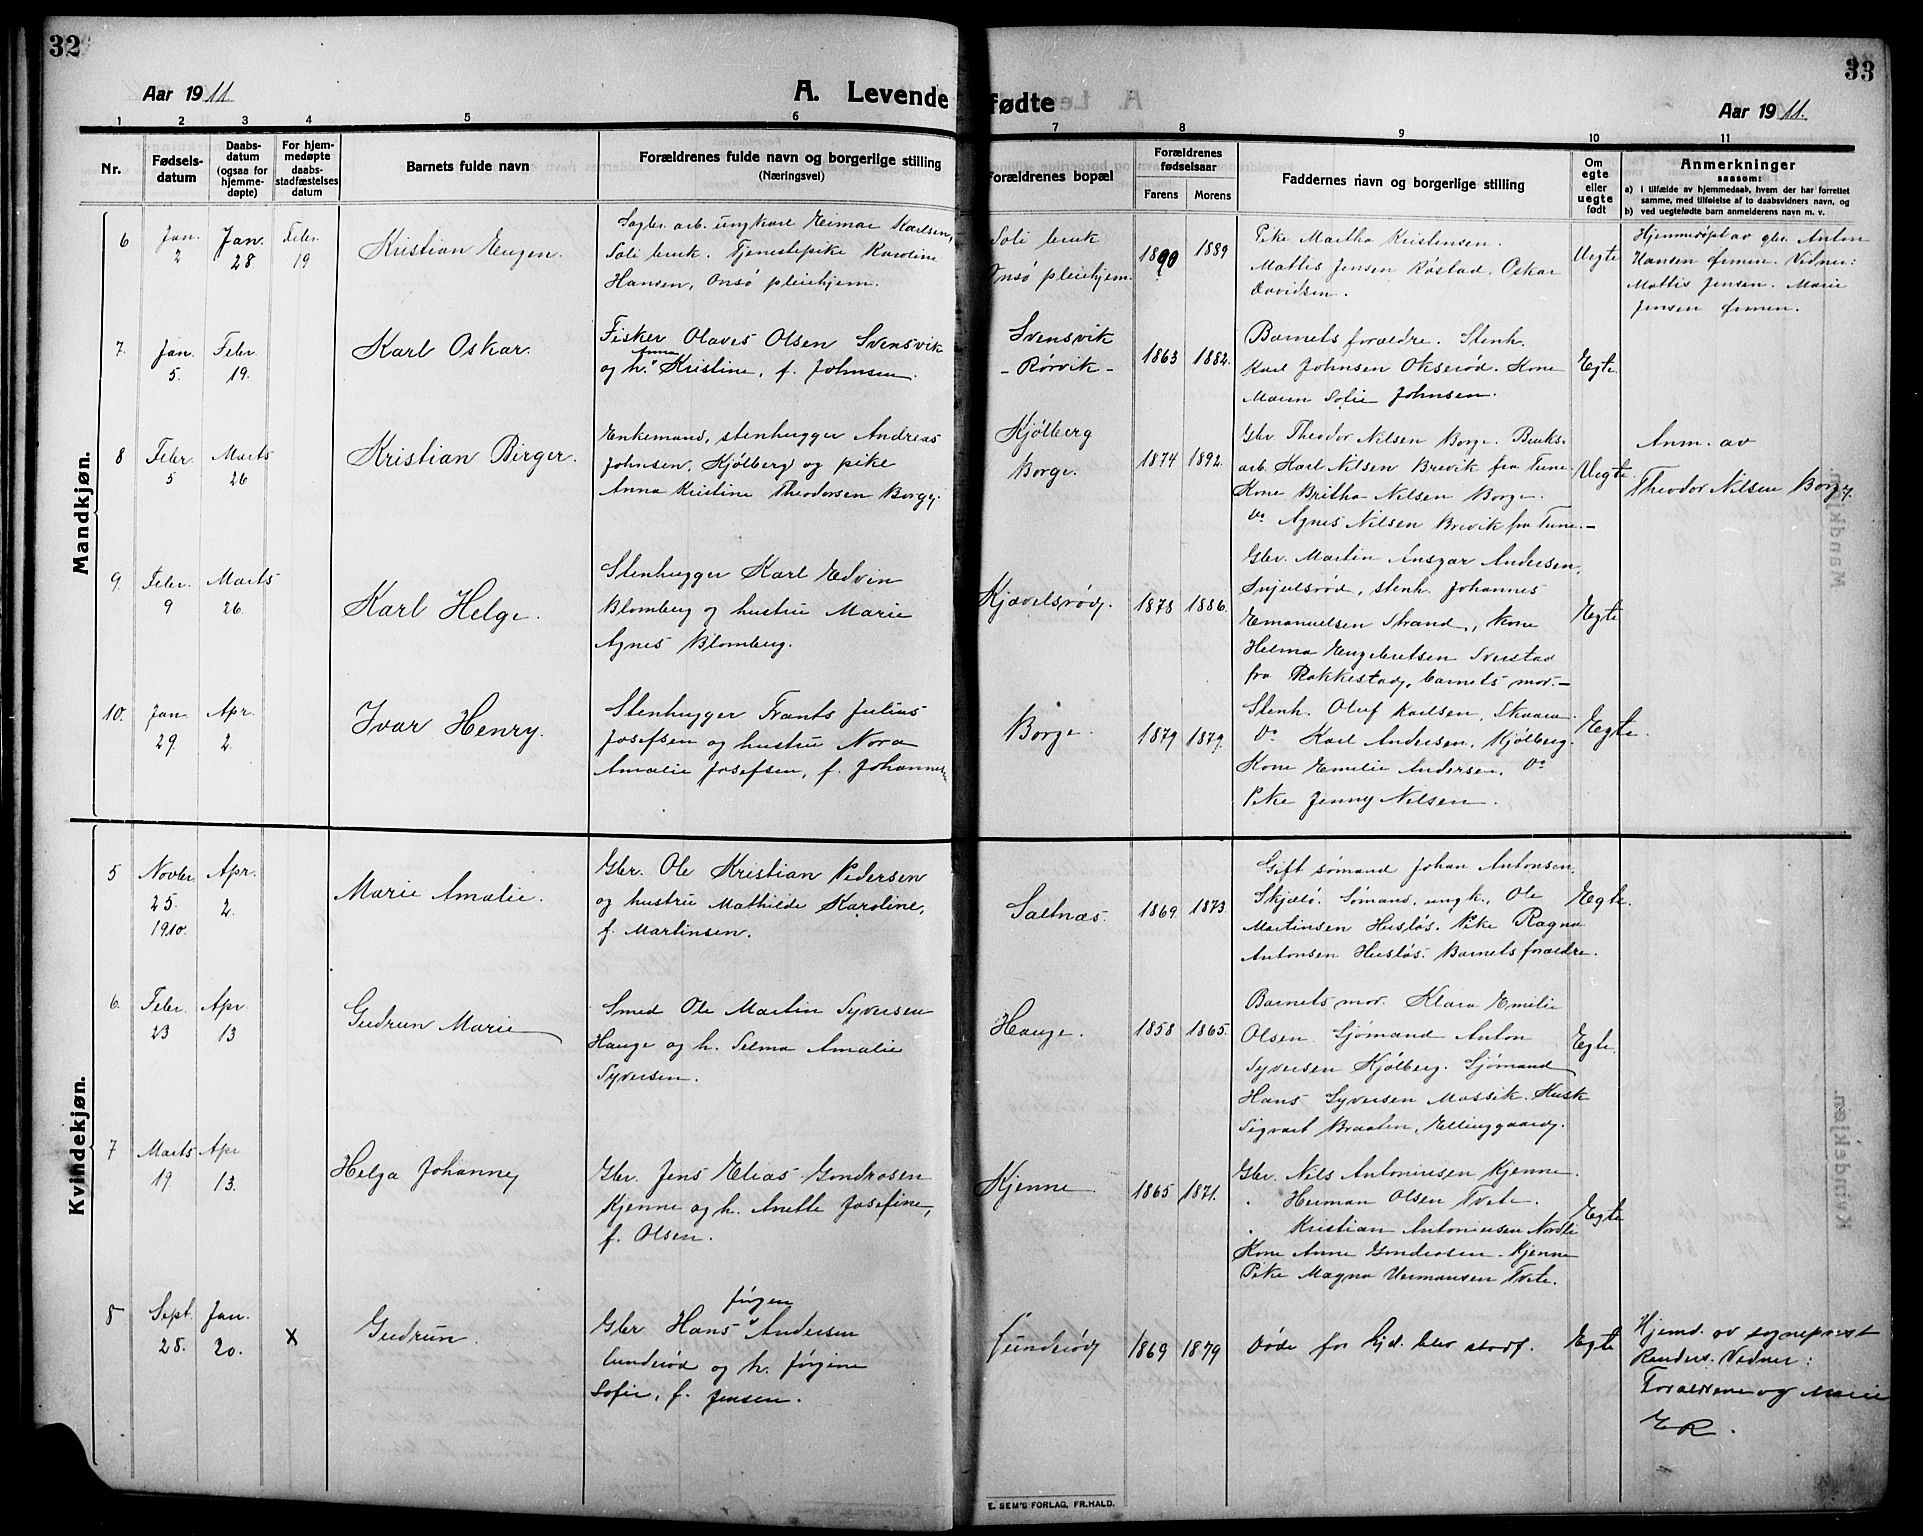 32
Aar 1911
A. Levende
1 2 3 4 5 6
Nr.
Fødsels-
datum
Daabs-
datum
(ogsaa for
hjemme-
døpte)
For hjem-
medøpte
daabs-
stadfæstelses
datum
Barnets fulde navn
Forældrenes fulde navn og borgerlige stilling
(Næringsvei)
Mandkjøn.
6
Jan.
2
Jan.
28.
Febr.
19
Kristian Eugen.
Sagbr. arb. ungkarl Eimar Karlsen,
Soli bruk. Tjenestepike Karoline
Hansen, Onsø pleiehjem.
7.
Jan.
5.
Febr.
19.
Karl Oskar.
Fisker Olaves Olsen Svensvik
og h. Anna Kristine, f. Johnsen.
8
Febr.
5
Marts
26
Kristian Birger.
Enkemand, stenhugger Andreas
Johnsen, Kjølberg og pike
Anna Kristine Theodorsen Borge.
9.
Febr.
9
Marts
26.
Karl Helge.
Stenhugger Karl Edvin
Blomberg og hustru Marie
Agnes Blomberg.
10.
Jan.
29.
Apr.
2.
Ivar Henry.
Stenhugger Frants Julius
Josefsen og hustru Nora
Amalie Josefsen, f. Johannes
Kvindekjøn.
5
Novbr.
25.
1910.
Apr.
2.
Marie Amalie.
Gbr. Ole Kristian Pedersen
og hustru Mathilde Karoline,
f. Martinsen.
6.
Febr.
23
Apr
13
Gudrun Marie
Smed Ole Martin Syversen
Hauge og h. Selma Amalie
Syversen.
7
Marts
19
Apr
13.
Helga Johanne
Gbr. Jens Elias Gondrosen
Kjenne og h. Anette Josefine,
f. Olsen.
8
Sept.
28.
Jan.
20.
X
Gudrun.
Gbr Hans Jørgen Andersen
Lunderød og h. Jørgine
Sofie, f. Jensen.
33
fødte
Aar 1911.
7 8 9 10 11
Forældrenes bopæl
Forældrenes
fødselsaar
Farens Morens
Faddernes navn og borgerlige stilling
Om
egte
eller
uegte
født
Anmerkninger
saasom:
a) i tilfælde av hjemmedaab, hvem der har forrettet
samme, med tilføielse af to daabsvidners navn, og
b) ved uegtefødte barn anmelderens navn m. v.
Soli bruk
Onsø pleiehjem.
1890 1889
Pike Martha Kristensen.
Mattis Jensen Røstad. Oskar
Davidsen.
Uegte
Hjemmedøpt av gbr. Anton
Hansen Ørmen. Vidner:
Mattis Jensen. Marie
Jensen Ørmen.
Svensvik
- Rørvik -
1863 1882.
Barnets forældre. Stenh.
Karl Johnsen Okserød. Kone
Maren Sofie Johnsen.
Egte.
Kjølberg
Borge.
1874 1892.
Gbr. Theodor Nilsen Borge. Bruks.
arb. Karl Nilsen Brevik fra Tune
Kone Britha Nilsen Borge.
Do Agnes Nilsen Brevik fra Tune.-
Uegte.
Anm. av
Theodor Nilsen Borge.
Kjævelsrød.
1878 1886.
Gbr. Martin Ansgar Andersen,
stenh. Johannes
Emanuelsen Strand, Kone
Helma Engebretsen Sverstad
fra Rakkestad, barnets mor.-
Egte
Borge.
1879 1879.
Stenh. Oluf Karlsen, Skaara
Do Karl Andersen, Kjølberg.
Kone Emilie Andersen, Do
Pike Jenny Nilsen.
Egte.
Saltnæs.
1869. 1873.
Gift sømand Johan Antonsen,
Skjælø. Sømand, ungk., Ole
Martinsen Husløs. Pike Ragna
Antonsen Husløs. Barnets forældre.
Egte.
Hauge.
1858 1865.
Barnets mor. Klara Emilie
Olsen. Sjømand Anton
Syversen Kjølberg. Sjømand
Hans Syversen Mossik. Husk
Sigvart Braaten, Ellinggaard.
Egte.
Kjenne
1865 1871.
Gbr. Nils Antoniusen Kjenne.
" Herman Olsen Tvete.
" Kristian Antoniusen Nordli
Kone Anne Gondrosen Kjenne
Pike Magna Hermansen Tvete.
Egte
Lunderød
1869 1879
Døde før hjd. blev stadf.
Egte
Hjemd. av sogneprest
Renders. Vidner:
Forældrene og Marie
E R.
E. SEM'S FORLAG, FR.HALD.